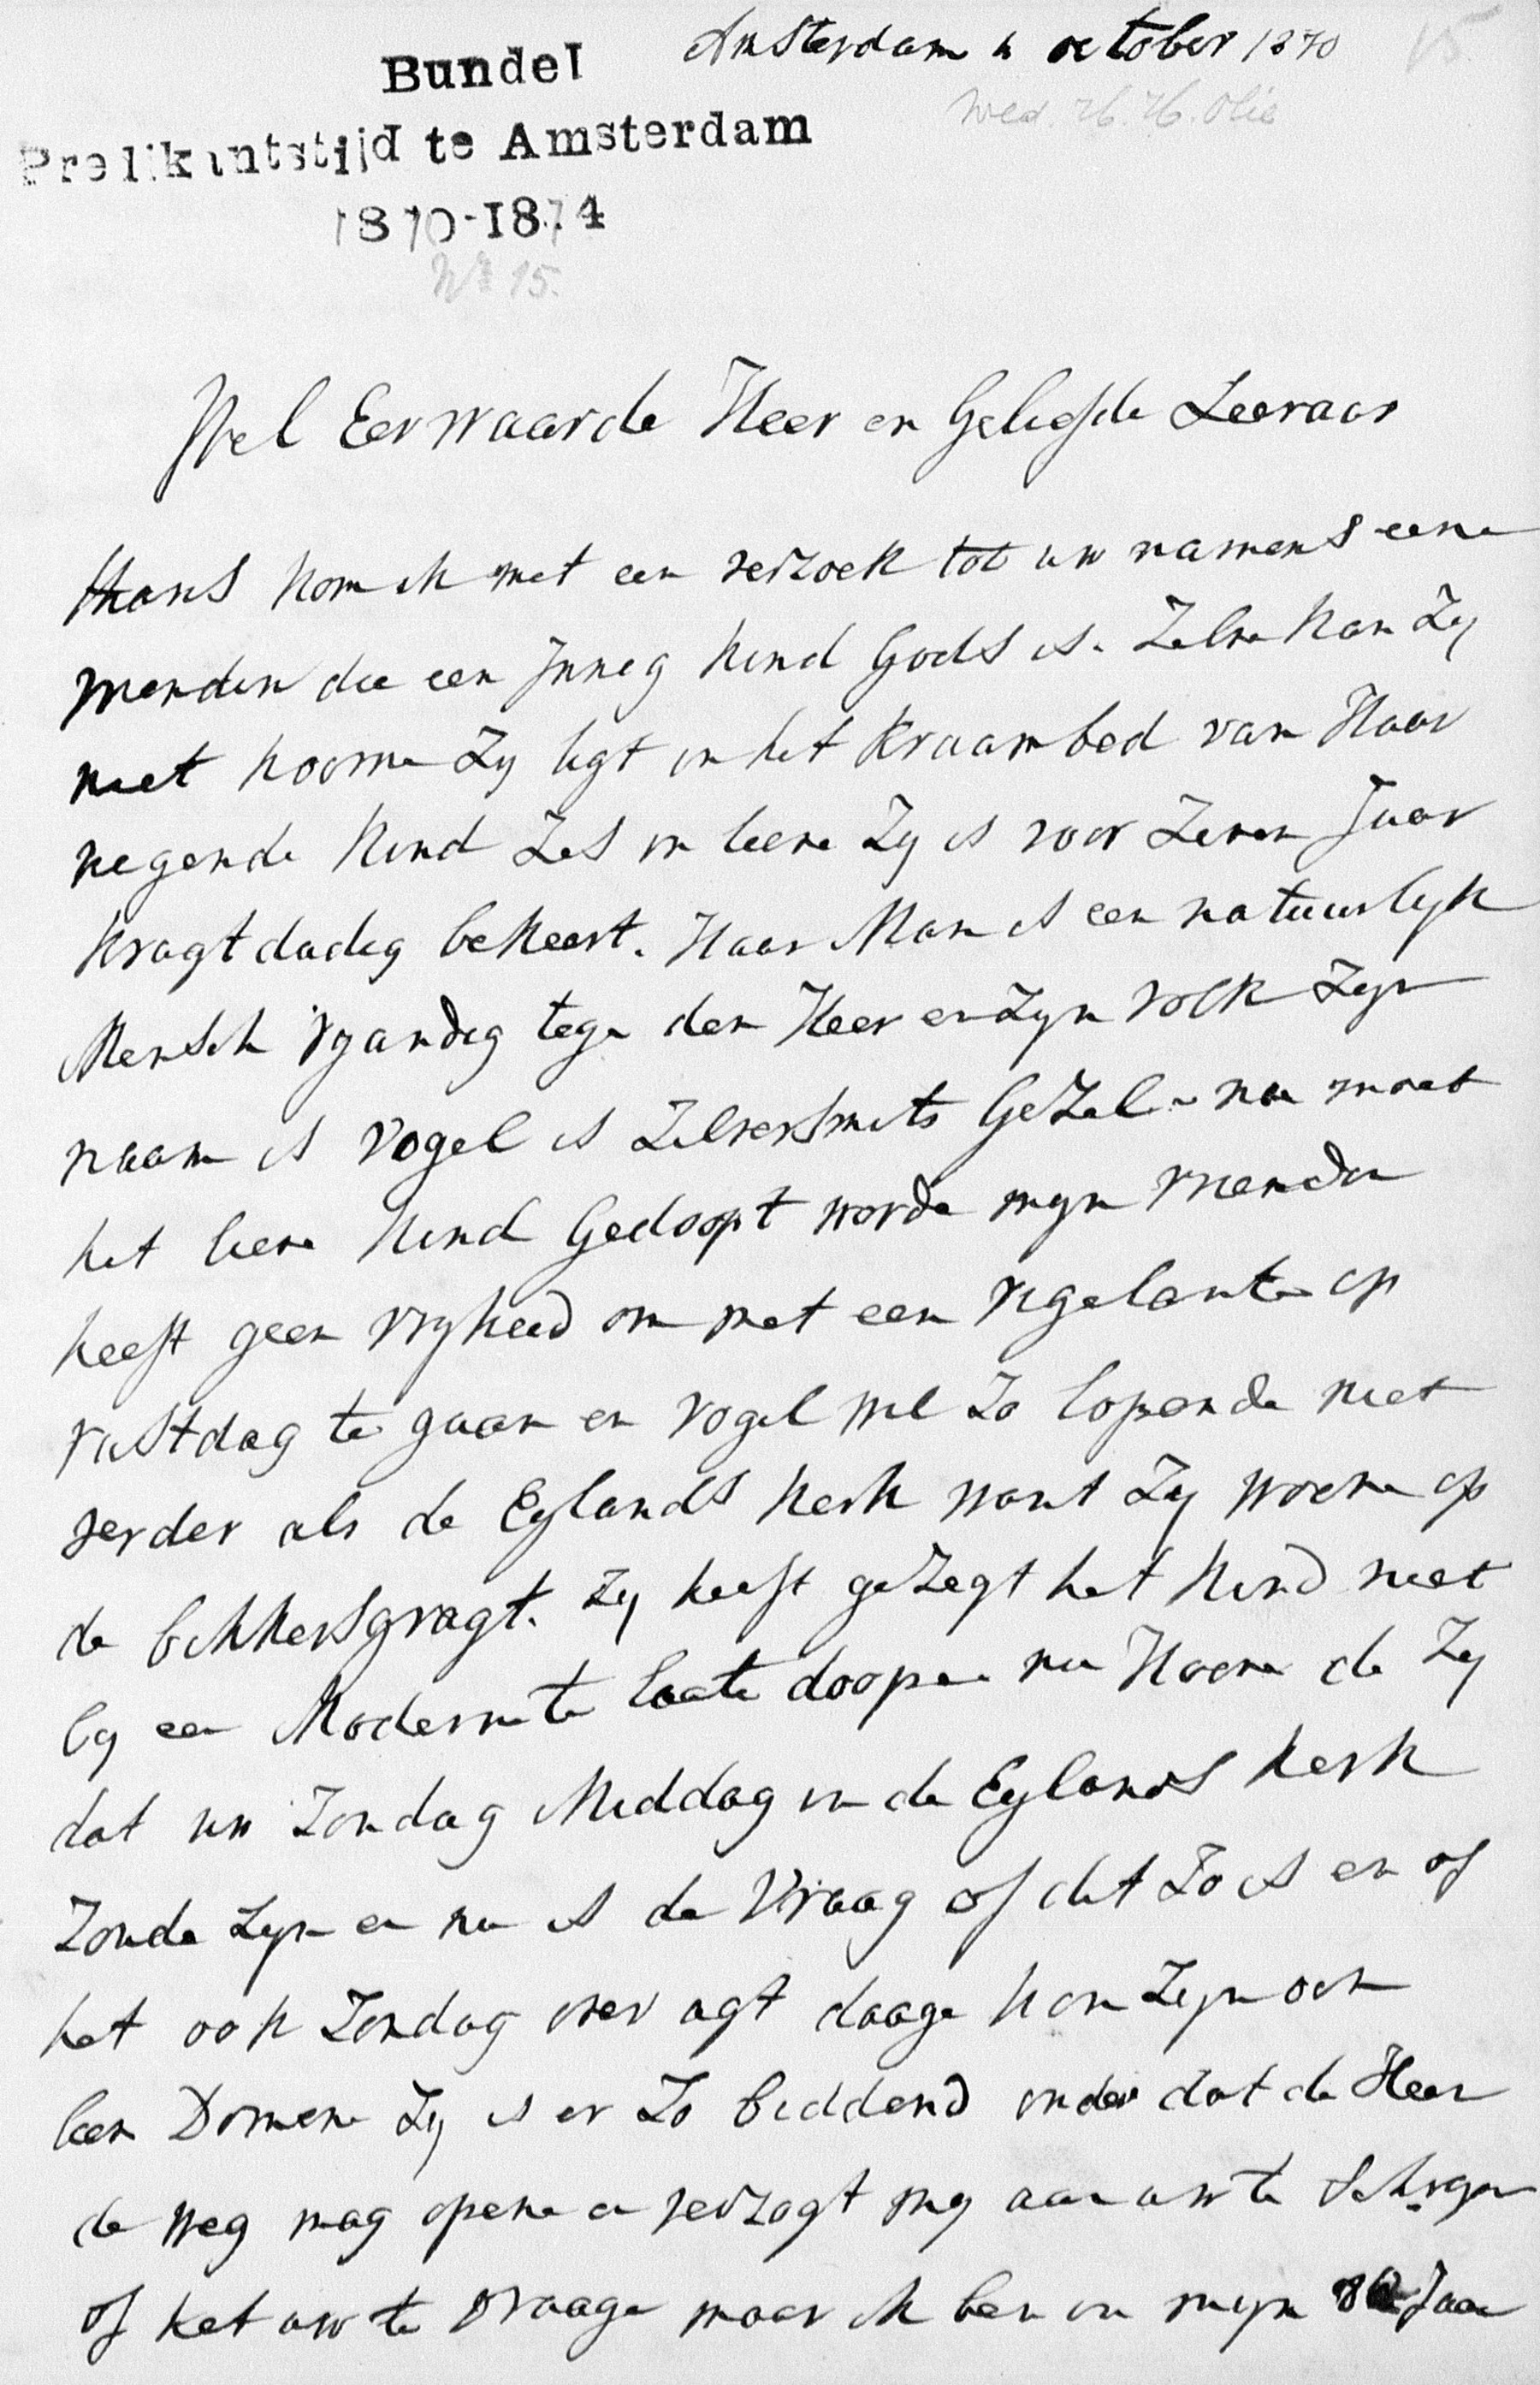 Amsterdam 4 october 1870
15
Wed. H.H. Olie
Bundel
Predikantstijd te Amsterdam
1870-1874
No 15.
Wel Eerwaarde Heer en Geliefde Leeraar
thans kom ik met een verzoek tot uw namens eene
vriendin die een Jnnig kind Gods is. Zelve kan Zy
niet koome Zy ligt in het Kraambed van Haar
negende kind Zes in leeve Zy is voor Zeven Jaar
kragtdadig bekeert. Haar Man is een natuurlyk
Mensch vyandig tege den Heer en Zyn volk Zyn
naam is vogel is Zilversmits GeZel nu moet
het lieve kind Gedoopt worde myn vriendin
heeft geen vryheid om met een vigelante op
rustdag te gaan en vogel wil Zo lopende niet
verder als de Eylands kerk want Zy woone op
de bikkersgragt. Zy heeft geZegt het kind niet
by een Moderne te laate doopen nu Hoorde Zy
dat uw Zondag Middag in de Eylands kerk
Zoude Zyn en nu is de Vraag of dit Zo is en of
het ook Zondag over agt daage kon Zyn och
lieve Domene Zy is er Zo biddend onder dat de Heer
de weg mag opene en verzogt my aan uw te Schryven
of het uw te vraage maar ik ben in myn Jaar